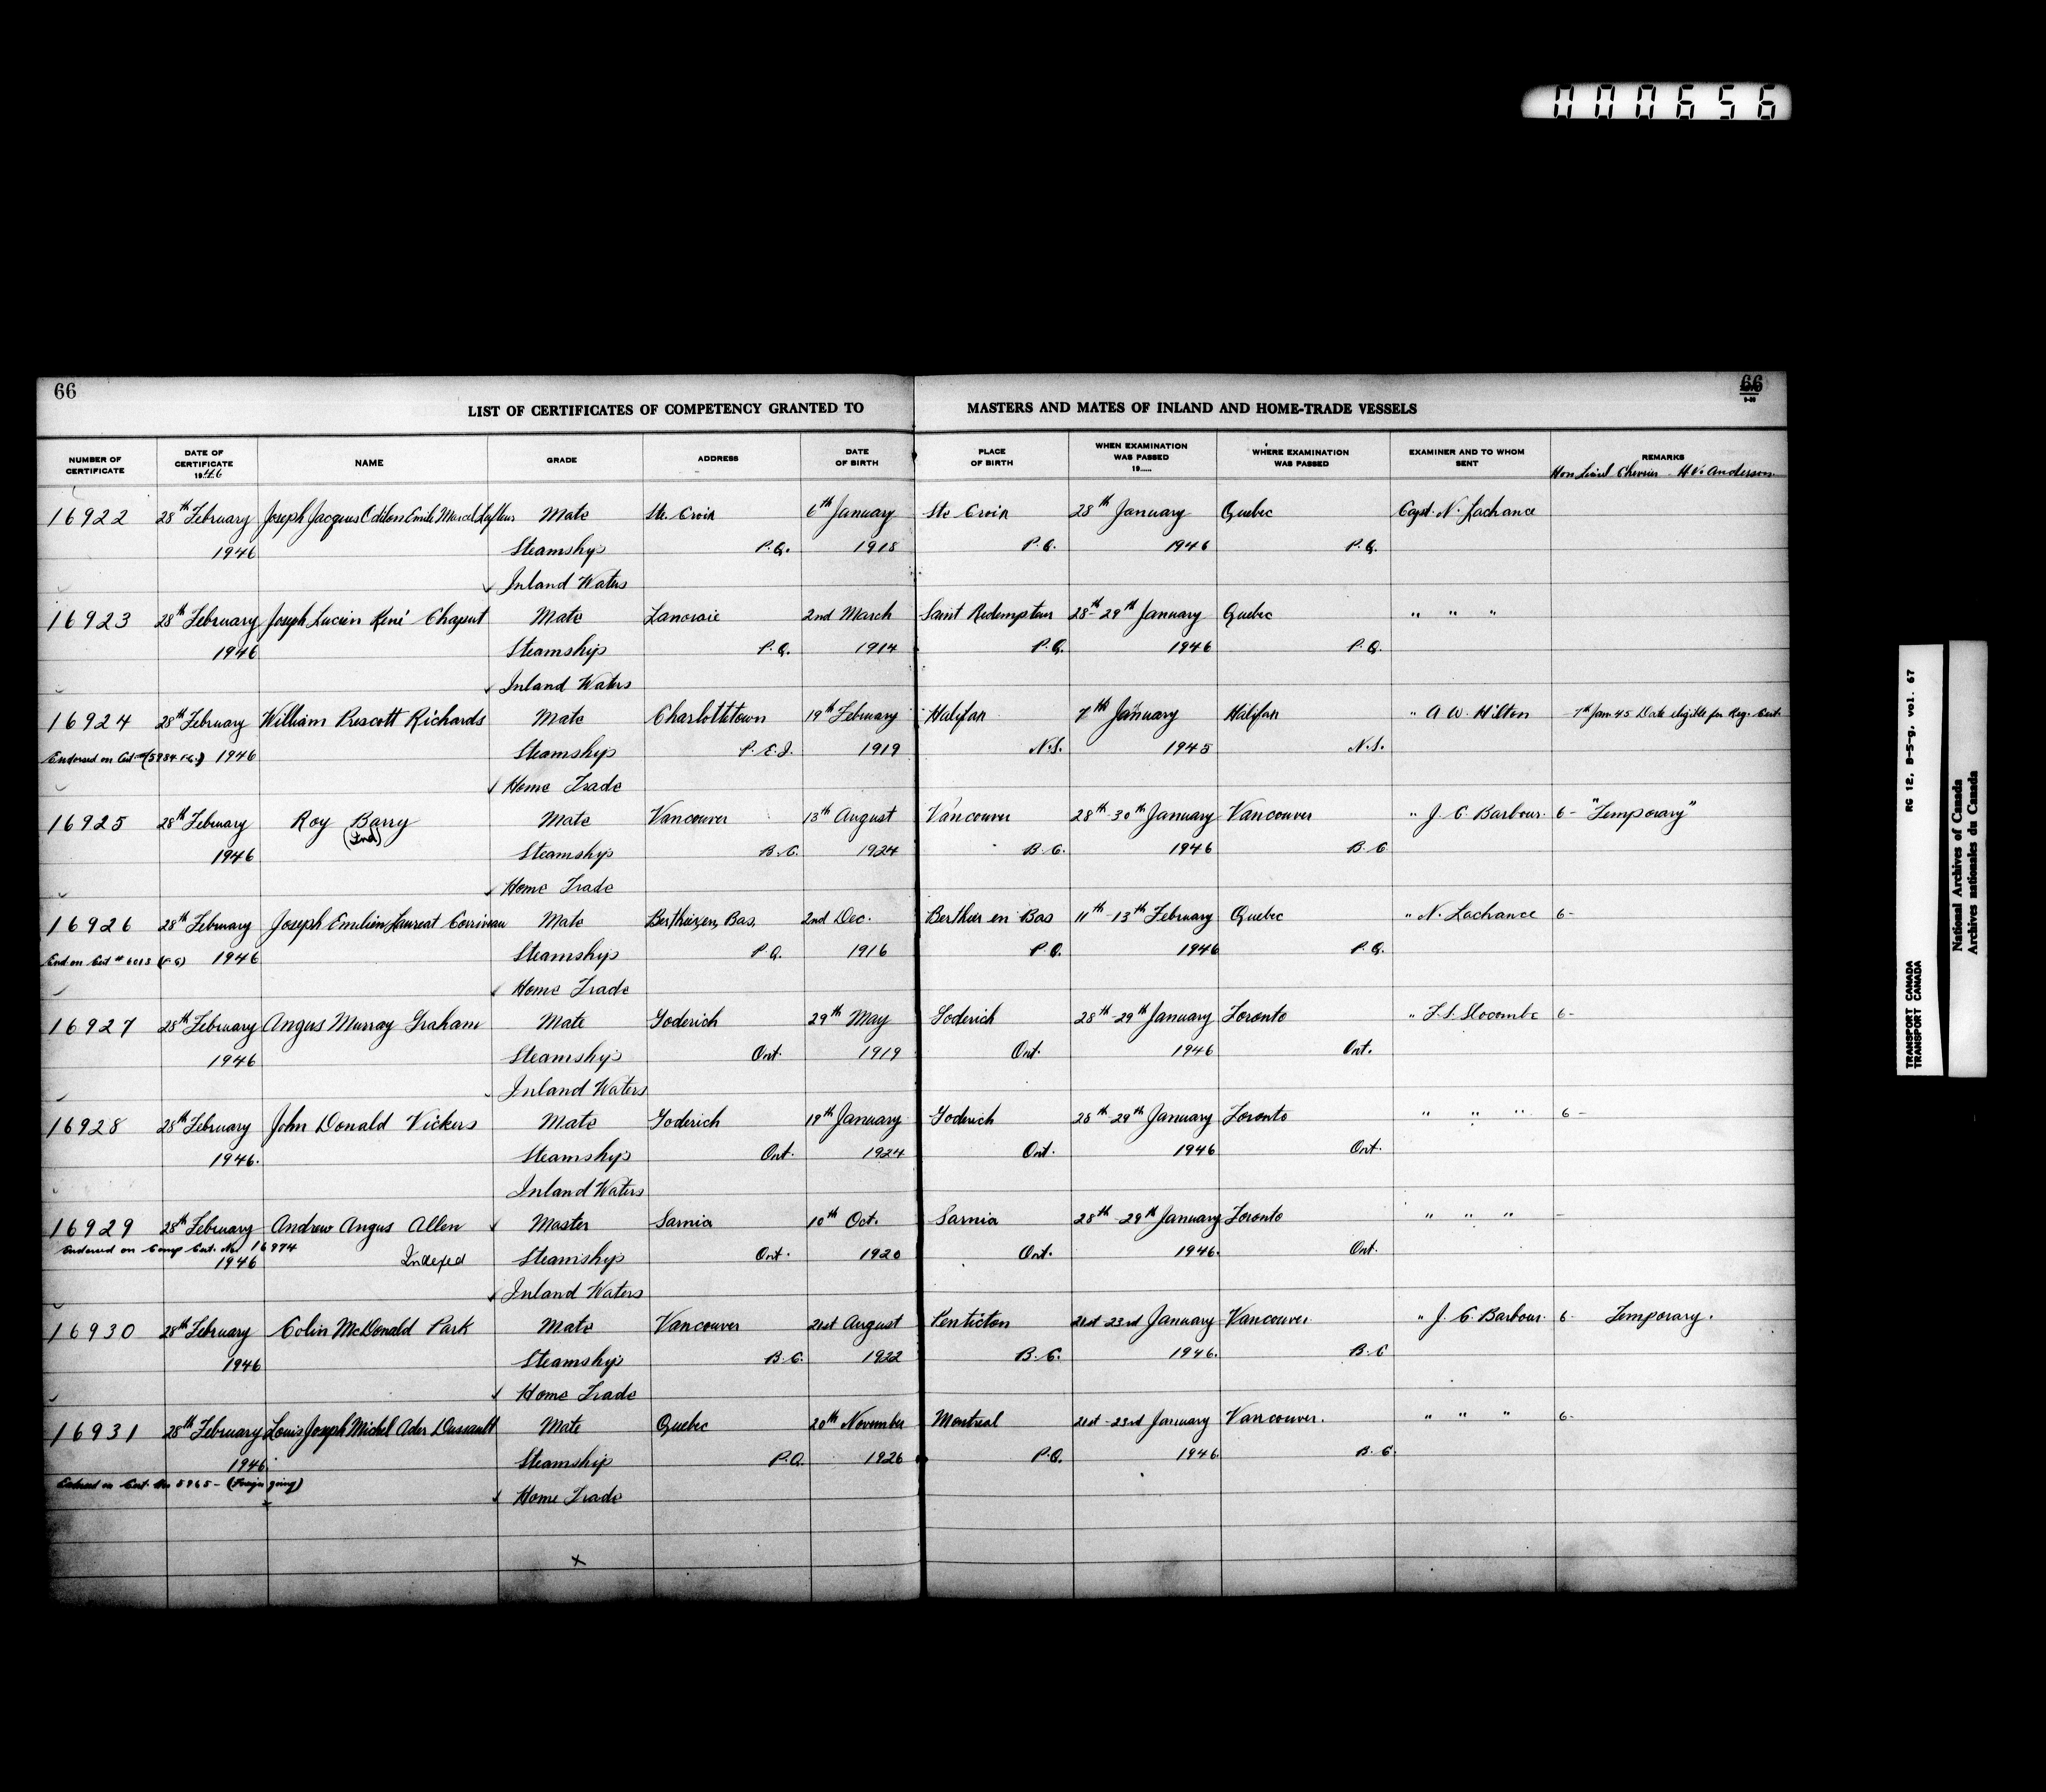 000656
66
66
LIST OF CERTIFICATES OF COMPETENCY GRANTED TO MASTERS AND MATES OF INLAND AND HOME-TRADE VESSELS
NUMBER OF CERTIFICATE DATE OF CERTIFICATE 1946 NAME GRADE ADDRESS DATE OF BIRTH PLACE OF BIRTH WHEN EXAMINATION WAS PASSED 19..... WHERE EXAMINATION WAS PASSED EXAMINER AND TO WHOM SENT REMARKS
Hon Lionel Chevrier - H.V. Anderson
16922 28th February Joseph Jacques Odilon Emile Marcel Lafleur Mate Ste. Croix 6th January Ste Croix 28th January Quebec Capt. N. Lachance
1946 Steamships P.Q. 1918 P.Q. 1946 P.Q.
Inland Waters
16923 28th February Joseph Lucien René Chaput Mate Lanoraie 2nd March Saint Redempteur 28th-29th January Quebec " " "
1946 Steamships P.Q. 1914 P.Q. 1946 P.Q.
Inland Waters
16924 28th February William Prescott Richards Mate Charlottetown 19th February Halifax 7th January Halifax " A W. Hilton - 7th Jan 45 Date eligible for Reg. Cert.
Endorsed on Cert. (5984 F.G.) 1946 Steamships P.E.I. 1919 N.S. 1945 N.S.
Home Trade
16925 28th February Roy Barry Mate Vancouver 13th August Vancouver 28th-30th January Vancouver " J. C. Barbour. 6 - "Temporary"
(Ind)
1946 Steamships B.C. 1924 B.C. 1946 B.C
Home Trade
16926 28th February Joseph Emilien Laureat Corriveau Mate Berthier, en, Bas, 2nd Dec. Berthier en Bas 11th-13th February Quebec " N. Lachance 6-
End on Cert # 6013 (F.G) 1946 Steamships P.Q. 1916 P.Q. 1946 P.Q.
Home Trade
16927 28th February Angus Murray Graham Mate Goderich 29th May Goderich 28th-29th January Toronto " F.S. Slocombe 6-
1946 Steamships Ont. 1919 Ont. 1946 Ont.
Inland Waters
16928 28th February John Donald Vickers Mate Goderich 19th January Goderich 28th-29th January Toronto " " " 6 -
1946. Steamships Ont. 1924 Ont. 1946 Ont.
Inland Waters
16929 28th February Andrew Angus Allen Master Sarnia 10th Oct. Sarnia 28th-29th January Toronto " " " -
Endorsed on Comp Cert. No. 16974
1946 Indexed Steamships Ont. 1920 Ont. 1946. Ont.
Inland Waters
16930 28th February Colin McDonald Park Mate Vancouver 21st August Penticton 21st-23rd January Vancouver " J. C. Barbour. 6- Temporary.
1946 Steamships B.C. 1922 B.C. 1946. B.C
Home Trade
16931 28th February Louis Joseph Michel Ader Dussault Mate Quebec 20th November Montreal 21st-23rd January Vancouver. " " " 6-
1946. Steamship P.Q. 1926 P.Q. 1946 B.C.
Endorsed on Cert. No 5965 - (Foreign going)
Home Trade
x
TRANSPORT CANADA RG 12, B-5-g, vol. 67
TRANSPORT CANADA
National Archives of Canada
Archives nationales du Canada